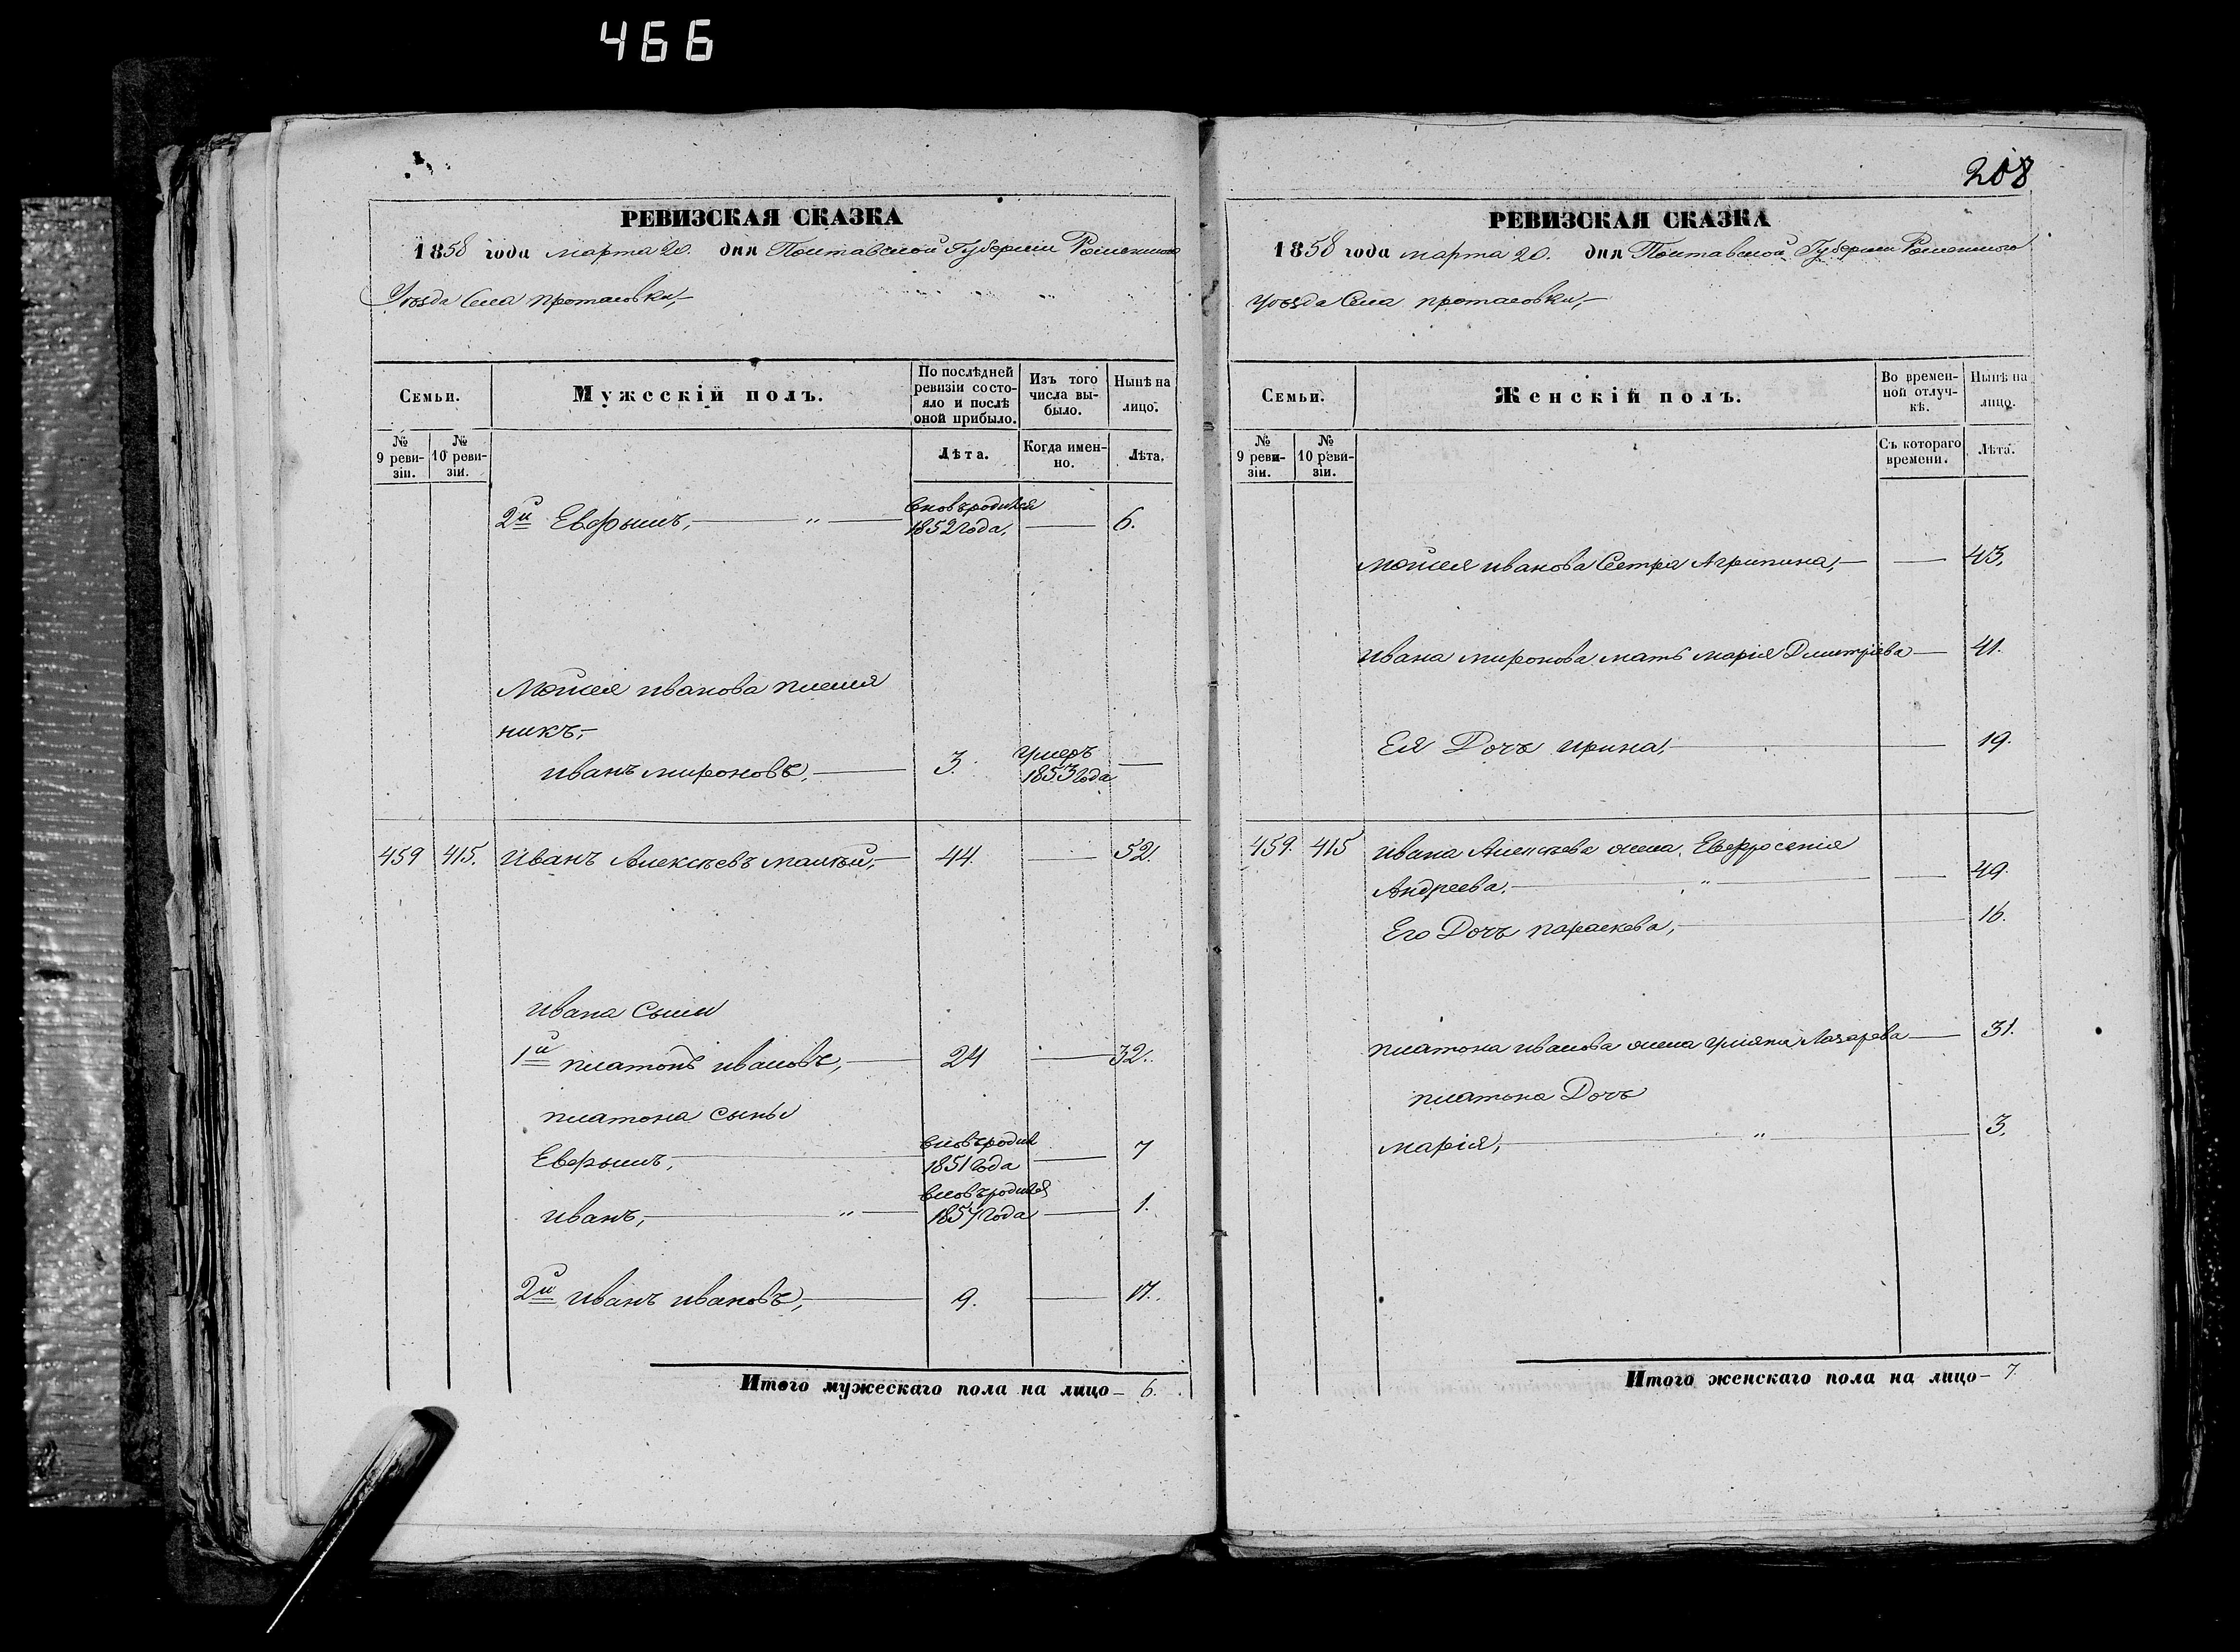 466
РЕВИЗСКАЯ СКАЗКА
1858 года марта 20. дня Полтавской Губернии Роменскаго
Уѣзда Села протасовки,
Семьи.
Мужескій полъ.
По послѣдней ревизіи состояло и послѣ оной прибыло.
Изъ того числа выбыло.
Нынѣ на лицо.
№ 9 ревизіи.
№ 10 ревизіи.
Лѣта.
Когда именно.
Лѣта.
2й Евфымъ, — „ — вновьродился 1852 года, — 6.
Мойсея иванова племя
никъ,—
иванъ мироновъ, — 3. умеръ 1853 года —
459 415. Иванъ Алексѣевъ малый, — 44. — 52.
ивана Сыны
1й платонъ ивановъ, — 24 — 32.
платона сыны
Евфымъ, — вновьродил 1851 года — 7
иванъ, — „ — вновьродился 1857 года — 1.
2й иванъ ивановъ, — 9. — 17.
Итого мужескаго пола на лицо — 6.
208
РЕВИЗСКАЯ СКАЗКА
1858 года марта 20. дня Полтавской Губернии Роменскаго
уѣзда Села протасовки,—
Семьи.
Женскій полъ.
Во временной отлучкѣ.
Нынѣ на лицо.
№ 9 ревизіи.
№ 10 ревизіи.
Съ котораго времени.
Лѣта.
мойсея иванова Сестра Агрипина, — — 43.
ивана миронова мать марія Дмитріева — 41.
Ея Дочь ирина, — 19.
459. 415 ивана Алексѣева жена, Евфросенія
Андреева. — „ — — 49.
Его Дочь параскева, — 16.
платона иванова жена уліяна Лазарева — 31.
платона Дочь
марія, — „ — 3.
Итого женскаго пола на лицо — 7.